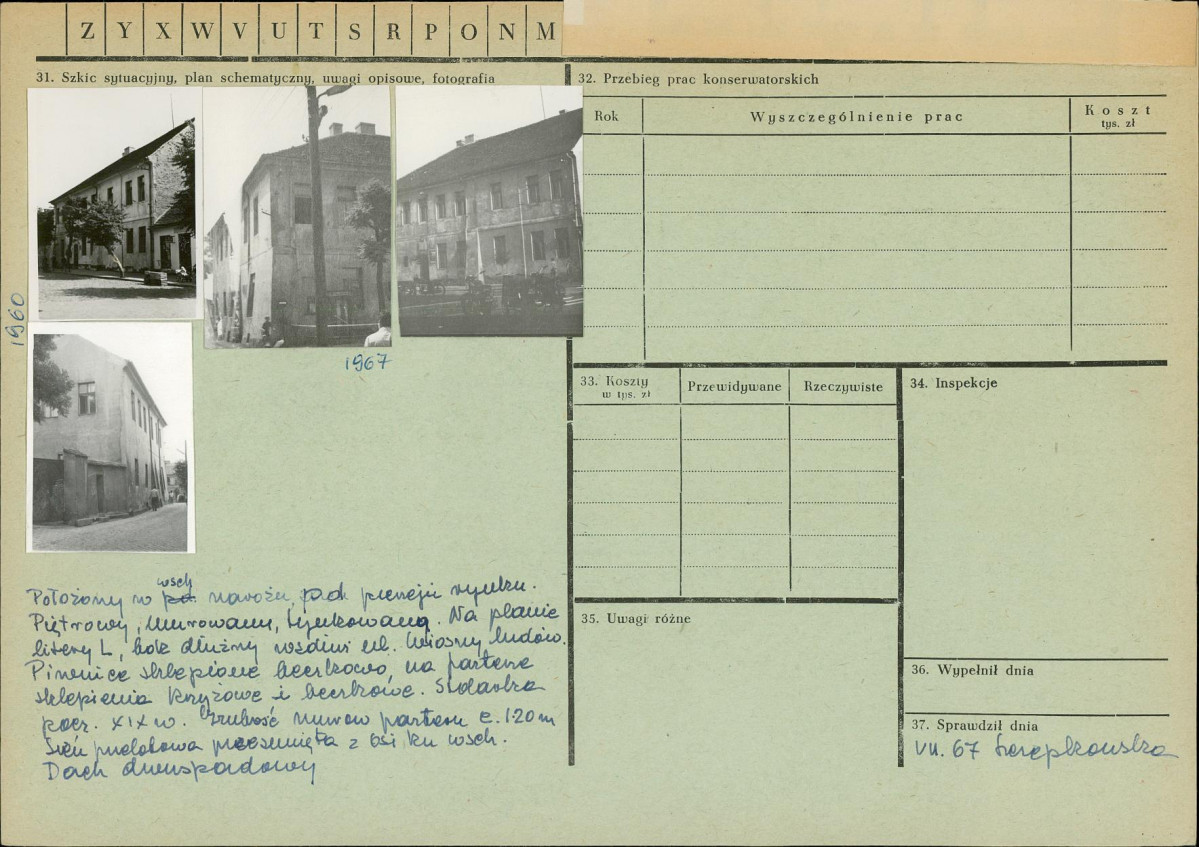 Z Y X W V U T S R P O N M
31. Szkic sytuacyjny, plan schematyczny, uwagi opisowe, fotografia
1960
1967
wsch
Położony w narożu, pierzeji rynku.
Piętrowy, murowany, tynkowany. Na planie
litery L, bok dłużny wzdłuż ul. Wiosny Ludów.
Piwnice sklepione beczkowo, na parterze
sklepienia krzyżowe i beczkowe. Stolarka
pocz. XIX w. Grubość murów parteru c. 1.20 m
Sień przelotowa przesunięta z osi ku wsch.
Dach dwuspadowy
32. Przebieg prac konserwatorskich
Rok
Wyszczególnienie prac
Koszt
tys. zł
33. Koszty
w tys. zł
Przewidywane
Rzeczywiste
34. Inspekcje
35. Uwagi różne
36. Wypełnił dnia
37. Sprawdził dnia
VII. 67